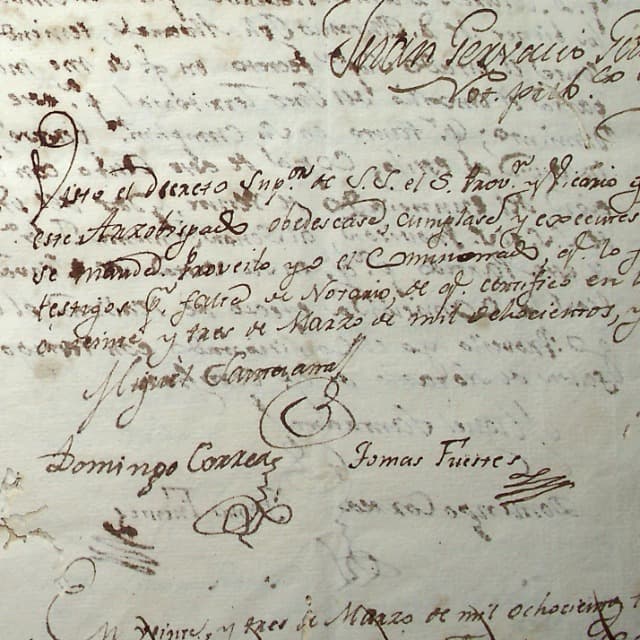 Juan Gervacio
Not. pucº.
Visto el decreto Supºr de S. S. el S. Provºr y Vicario
este Arzobispado obedescase, cumplase, y execu
se manda. Proveilo yo el Comisionado, qº lo
testigos pº. falta de Notario, de qº certifico en
a veinte, y tres de Marzo de mil ochocientos, y
Miguel
Domingo Correa Tomas Fuertes
En veinte, y tres de Marzo de mil ochociento